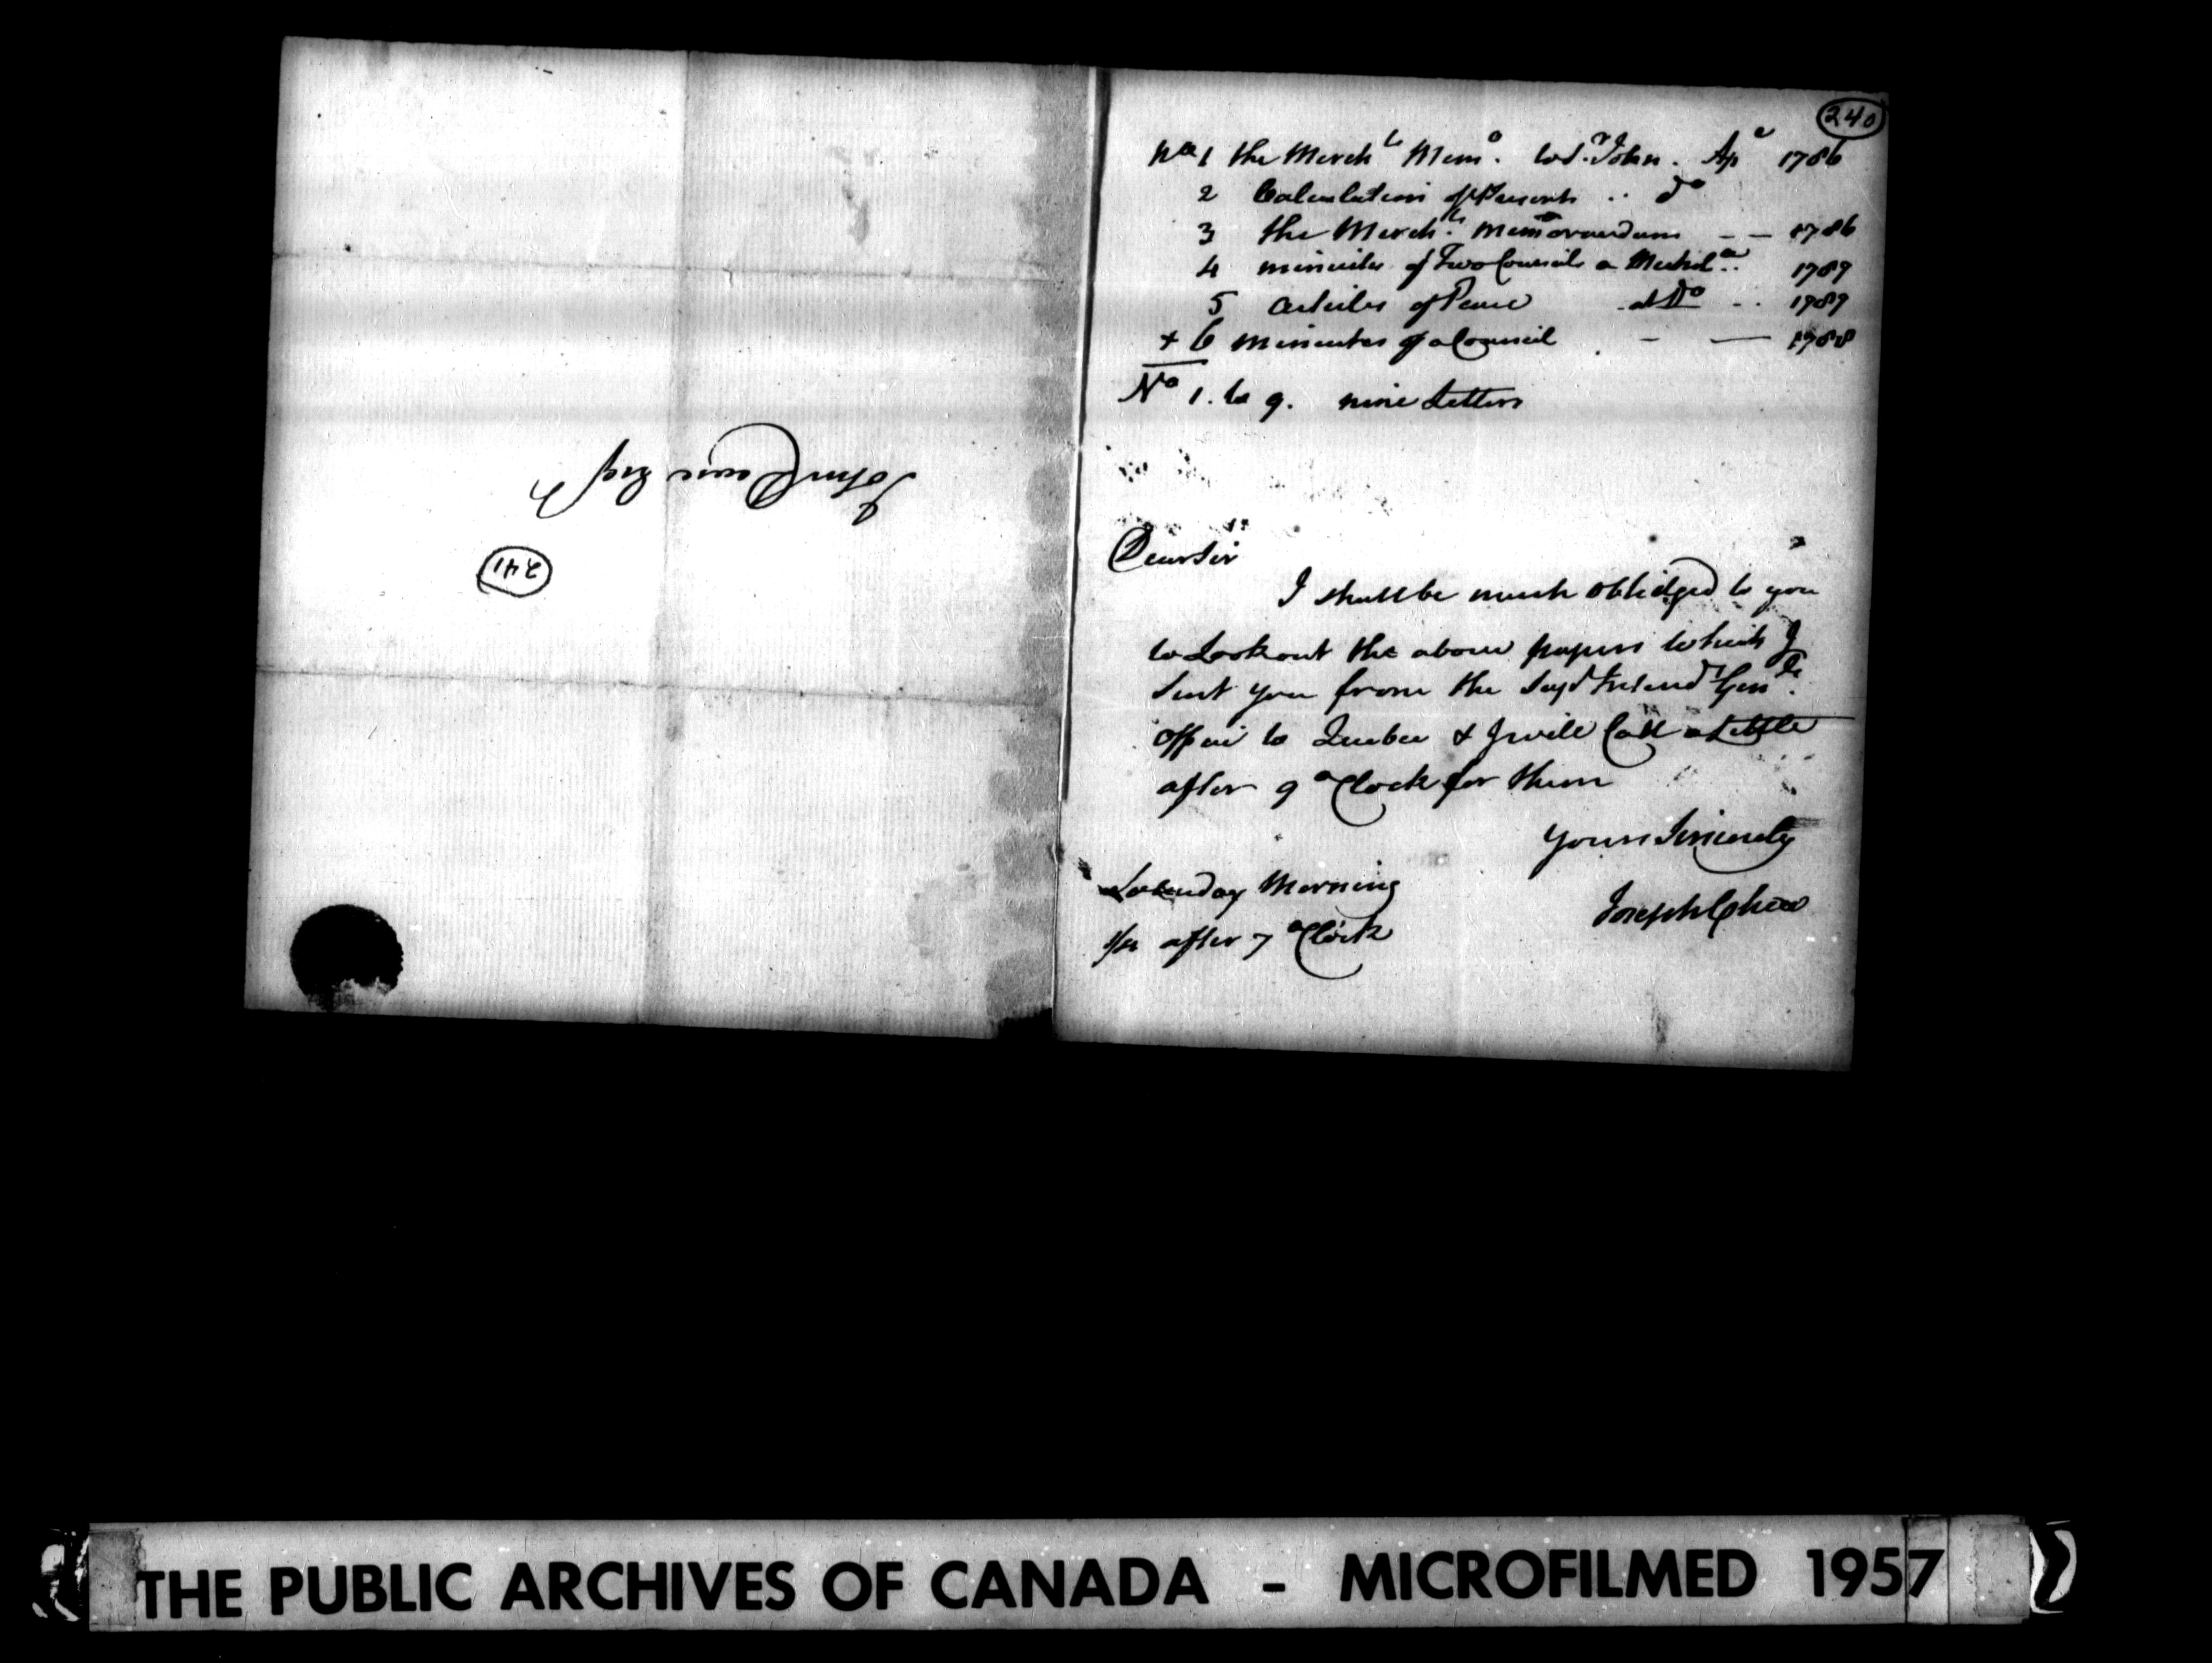 240
No 1 the Merchts Memo. to Sr. John. Apl 1786
2 Calculation of Presents .. do
3 the Merchts Memorandum - - 1786
4 minuites of Two Councils a Michila.. 1787
5 Articles of Peace at Do .. 1787
+ 6 minuites of a Council - — 1788
No 1. to 9. nine Letters
Dear Sir
I shall be much oblidged to you
to Look out the above papers which I
sent you from the Supd Intend Genls
Office to Quebec & I will Call a Little
after 9 o Clock for them
Yours Sincerely
Joseph Chew
Saturday Morning
after 7 o Clock
John Esqr
241
THE PUBLIC ARCHIVES OF CANADA - MICROFILMED 1957